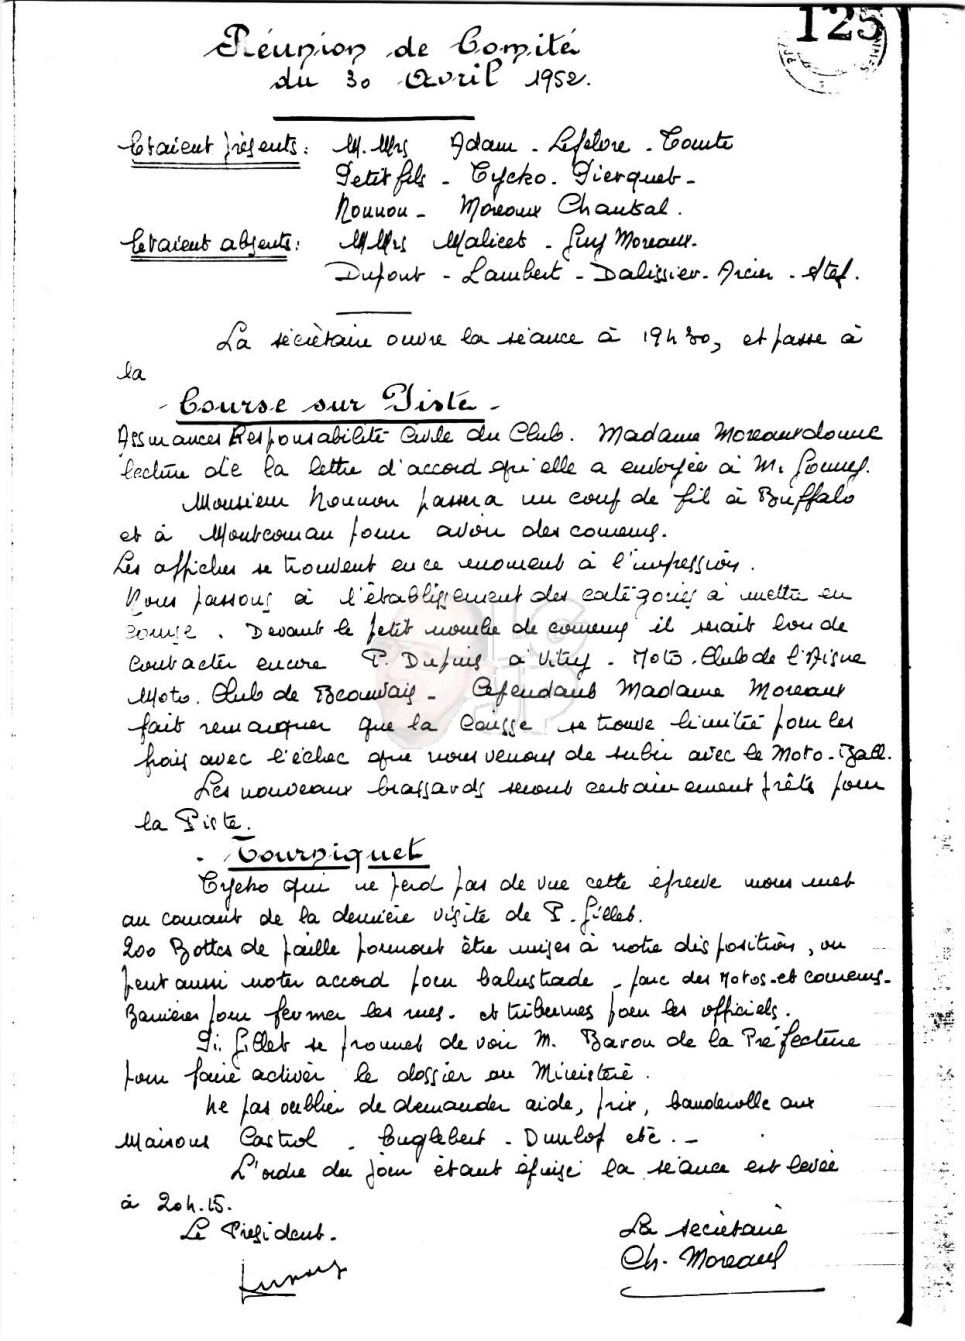 125
Réunion de Comité
du 30 Avril 1952.
Etaient présents : M.Mrs Adam - Lefebvre - Comte
Petitfils - Cycko - Pierquet -
Nounou - Moreaux Chantal.
Etaient absents : MMrs Malicet - Guy Moreaux.
Dupont - Lambert - Dalissier - Arcier - Stef.
La secrètaire ouvre la séance à 19h30, et passe à
la
- Course sur Piste -
Assurances Responsabilité Civile du Club. Madame Moreaux donne
lecture de la lettre d'accord qu'elle a envoyée à M.
Monsieur Nounou passera un coup de fil à Buffalo
et à pour avoir des coureurs.
Les affiches se trouvent en ce moment à l'impression.
Nous passons à l'établissement des catégories à mettre en
course. Devant le petit nombre de coureurs il serait bon de
contacter encore P. Dupuis à Vitry - Moto.Club de l'Aisne
Moto.Club de Beauvais - Cependant Madame Moreaux
fait remarquer que la Caisse se trouve limitée pour les
frais avec l'échec que nous venons de subir avec le Moto-Ball.
Les nouveaux brassards seront certainement prêts pour
la Piste.
- Tourniquet
Cycko qui ne perd pas de vue cette épreuve nous met
au courant de la dernière visite de P. Gillet.
200 Bottes de paille pourront être mises à notre disposition, on
peut aussi noter accord pour balustrade - parc des Motos et coureurs -
Barrières pour fermer les rues - et tribunes pour les officiels.
P. Gillet se promet de voir M. Baron de la Préfecture
pour faire activer le dossier au Ministère.
Ne pas oublier de demander aide, prix, banderolle aux
Maisons Castrol - Englebert - Dunlop etc. -
L'ordre du jour étant épuisé la séance est levée
à 20h.15.
Le Président.
La secrétaire
Ch. Moreaux